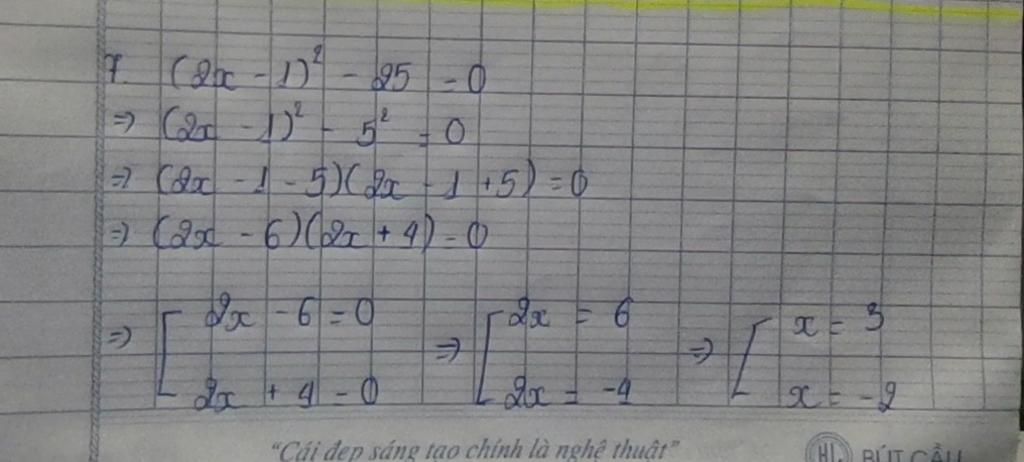 7. (2x - 1)² - 25 = 0
=> (2x - 1)² - 5² = 0
=> (2x - 1 - 5)(2x - 1 + 5) = 0
=> (2x - 6)(2x + 4) = 0
=> [ 2x - 6 = 0 => [ 2x = 6 => [ x = 3
2x + 4 = 0 2x = -4 x = -2
"Cái đẹp sáng tạo chính là nghệ thuật" HL BÚT CẦU